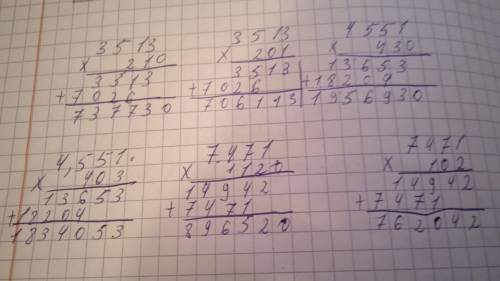 3513
x 210
3513
+7026
737730
3513
x 201
3513
+7026
706113
4551
x 430
13653
+18204
1956930
4,551.
x 403
13653
+18204
1834053
7471
x 1120
14942
+7471
896520
7471
x 102
14942
+7471
762042